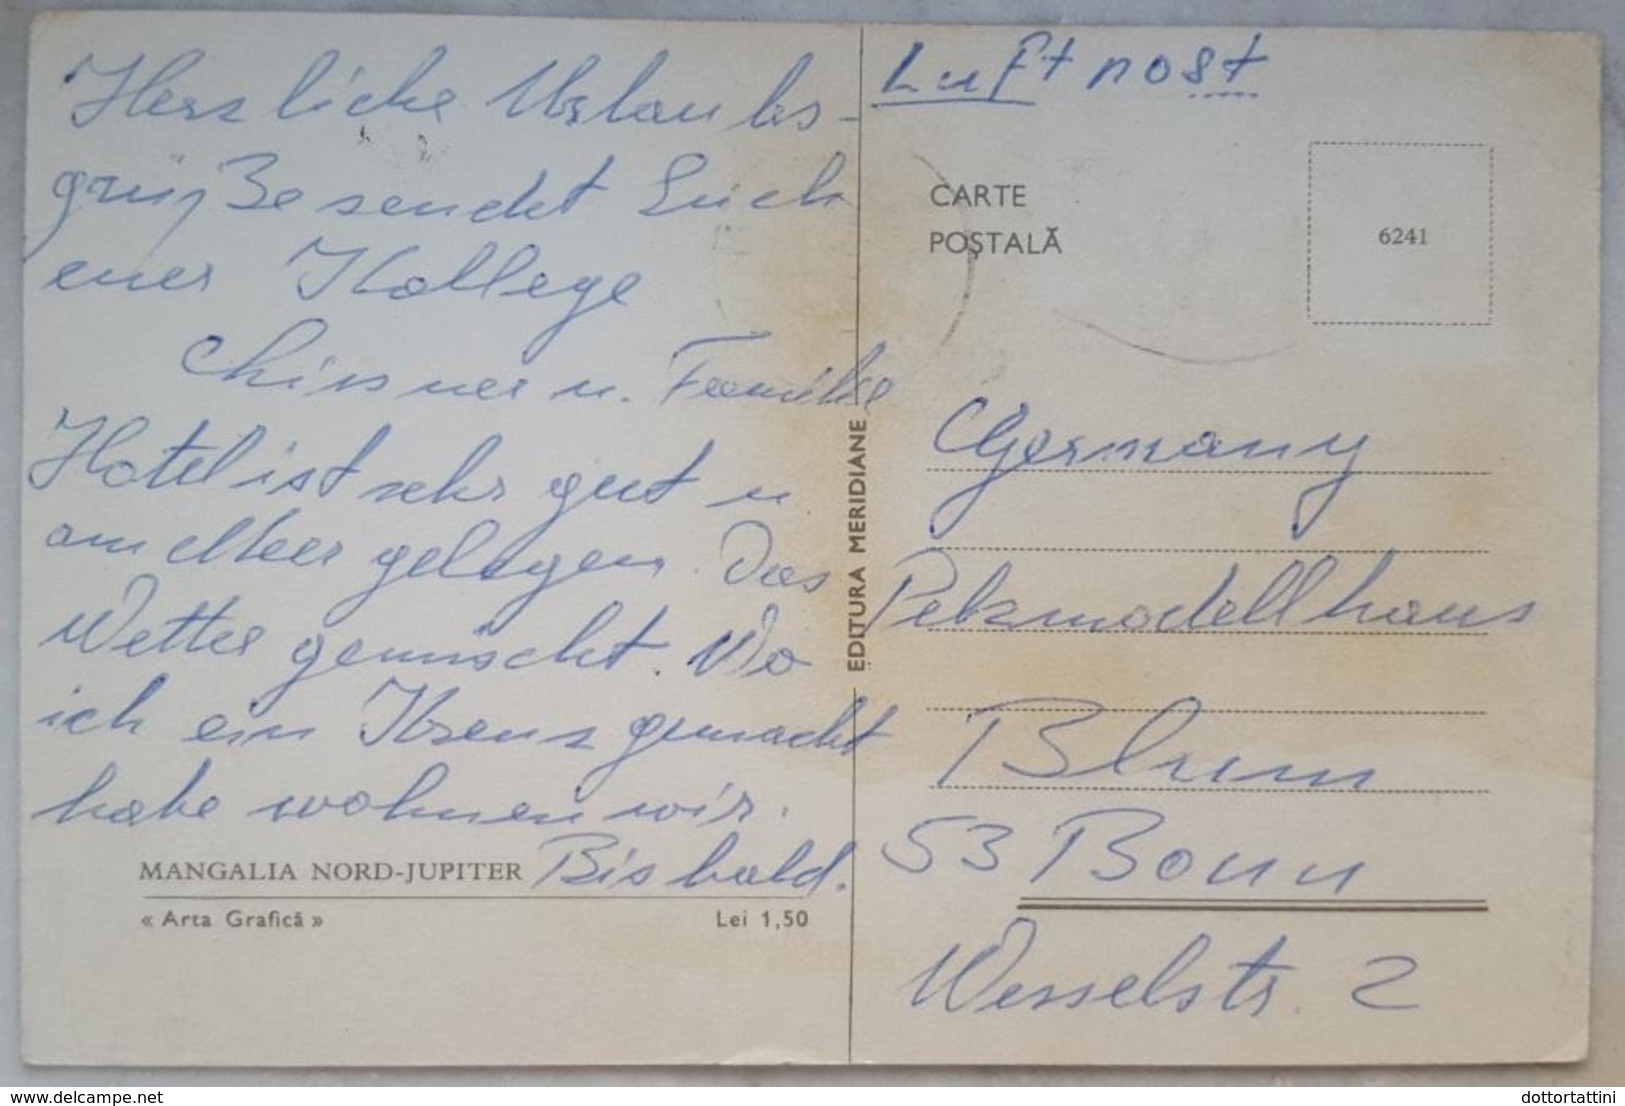 Herzliche Urlaubs-
grüße sendet Euch
euer Kollege
u. Familie
Hotel ist sehr gut u
am Meer gelegen. Das
Wetter gemischt. Wo
ich ein Kreuz gemacht
habe wohnen wir.
Bis bald.
MANGALIA NORD-JUPITER
« Arta Grafică »
Lei 1,50
EDITURA MERIDIANE
Luftpost
CARTE
POȘTALĂ
6241
Germany
Pelzmodellhaus
Blum
53 Bonn
Wesselstr. 2
www.delcampe.net
dottortattini